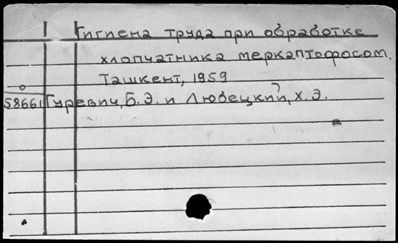 Гигиена труда при обработке
хлопчатника меркаптофосом.
Ташкент, 1959
58661 Гуревич, Б. Э. и Любецкий, Х. Э.